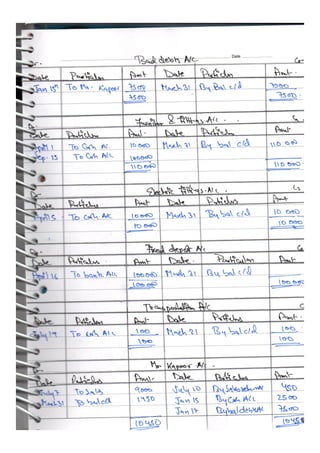 Bad debts A/c
Dr. Date Cr
Date Particulars Amt Date Particulars Amt
Jan 15th To Mr. Kapoor 7500 March 31 By Bal c/d 7000
7500 7500
Furniture & fittings A/c. Cr
Date Particulars Amt. Date Particulars Amt
April 1 To Cash A/c 10000 March 31 By bal c/d 110 000
Sep. 15 To Cash A/c 100000
110000 110 000
Electric fittings A/c. Cr
Date Particulars Amt Date Particulars Amt
April 5 To Cash A/c 10000 March 31 By bal c/d 10 000
10000 10 000
Fixed deposit A/c Cr
Date Particulars. Amt Date. Particulars Amt
April 16 To bank A/c 100 000 March 31 By bal c/d
100 000 100 000
Transportation A/c
Date Particulars Amt Date Particulars Amt.
July 19 To Cash A/c 100 March 31 By bal c/d 100
100 100
Mr. Kapoor A/c.
Date Particulars Amt. Date Particulars Amt
July 7 To Sales 9000 July 10 450
March 31 To bal c/d 1450 Jan 15 By Cash A/c 2500
Jan 17 7500
10450 10450